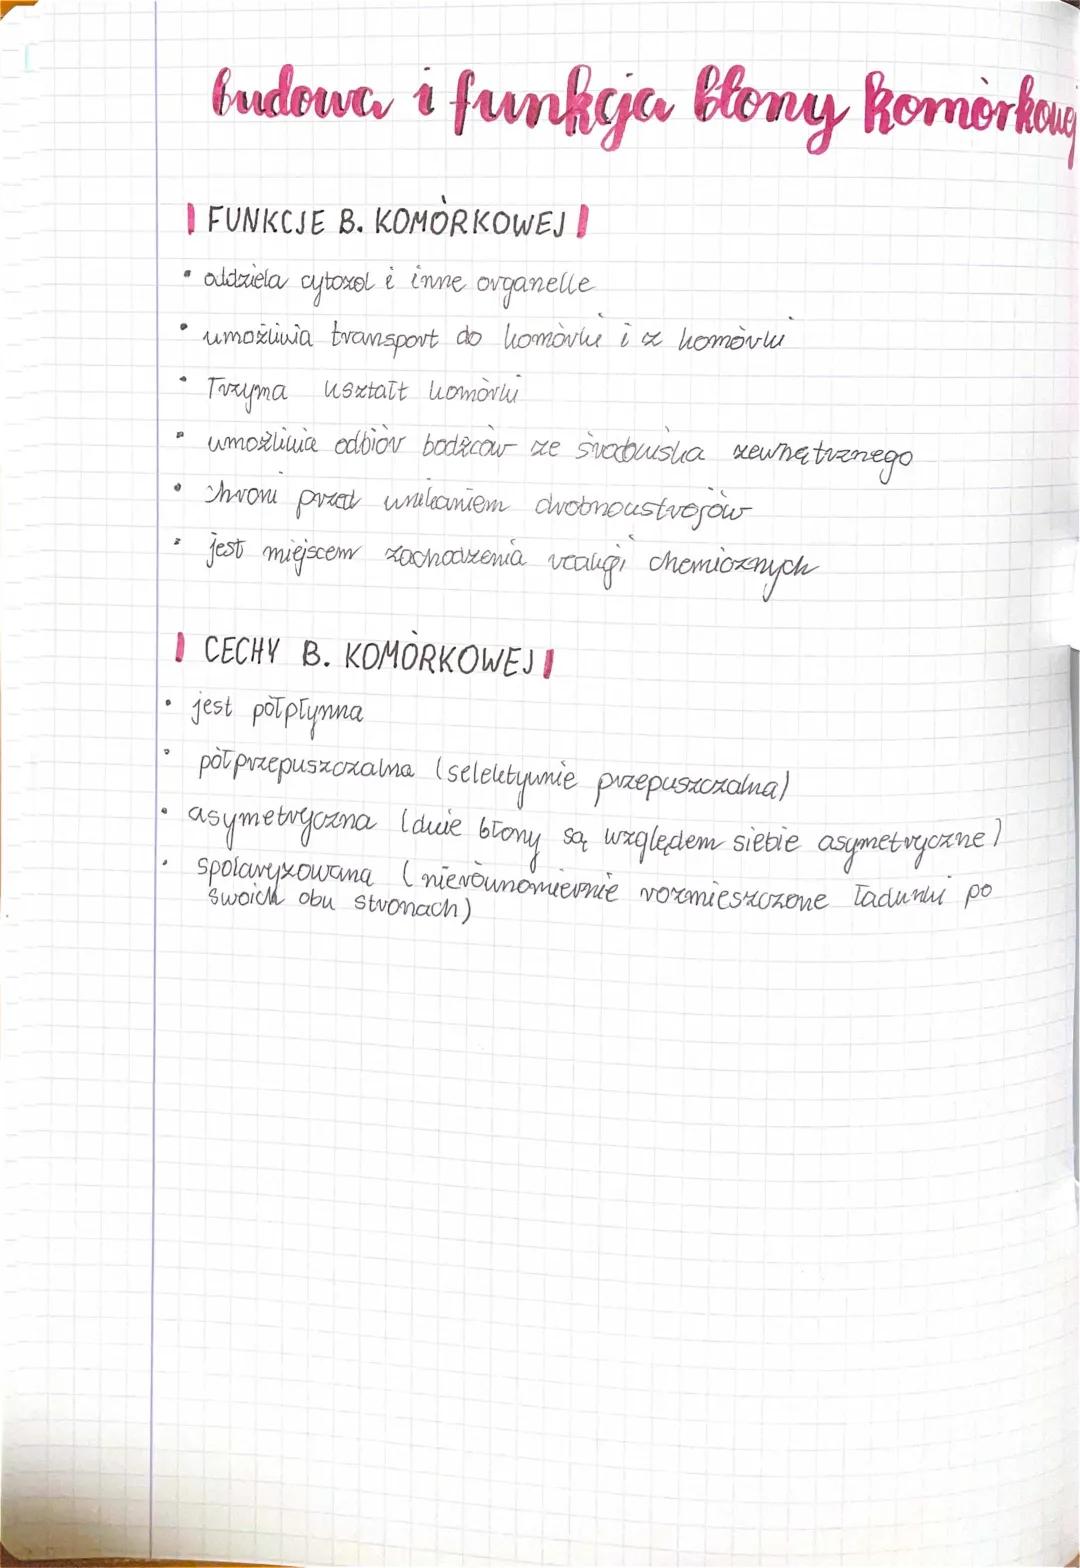 budowa i funkcja błony komórkowej
FUNKCJE B. KOMÓRKOWEJ
• oddziela cytozol i inne organelle
• umożliwia transport do komórki i z komórki
• Trzyma kształt komórki
• umożliwia odbiór bodźców ze środowiska zewnętrznego
• chroni przed wnikaniem drobnoustrojów
• jest miejscem zachodzenia reakcji chemicznych
CECHY B. KOMÓRKOWEJ
• jest półpłynna
• półprzepuszczalna (selektywnie przepuszczalna)
• asymetryczna (dwie błony są względem siebie asymetryczne)
• spolaryzowana (nierównomiernie rozmieszczone ładunki po
swoich obu stronach)